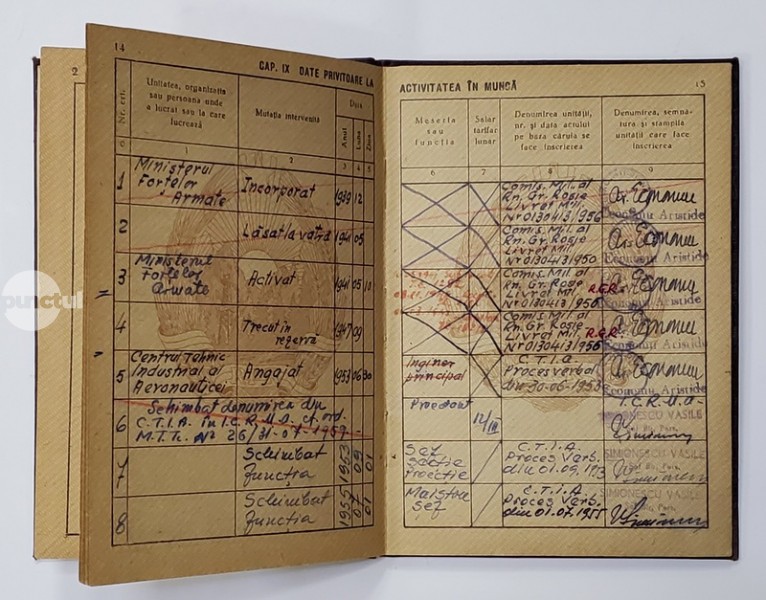 2
14
CAP. IX DATE PRIVITOARE LA
Nr. crt.
Unitatea, organizația
sau persoana unde
a lucrat sau la care
lucrează
Mutația intervenită
Data
Anul
Luna
Ziua
0
1
2
3
4
5
1
Ministerul
Forțelor
Armate
Incorporat
1939
12
2
Lăsat la vatră
1941
05
3
Ministerul
Forțelor
Armate
Activat
1941
05
10
4
Trecut in
rezervă
1947
09
5
Centrul Tehnic
Industrial al
Aeronauticei
Angajat
1953
06
30
6
Schimbat denumirea din
C.T.I.A. in I.C.R.M.A. cf. ord.
M.T.Tc. Nº 26/31-07-1959-
7
Schimbat
funcția
1953
09
01
8
Schimbat
funcția
1955
07
01
punctul
ACTIVITATEA ÎN MUNCĂ
15
Meseria
sau
funcția
Salar
tarifar
lunar
Denumirea unității,
nr. și data actului
pe baza căruia se
face înscrierea
Denumirea, semnă-
tura și stampila
unității care face
înscrierea
6
7
8
9
Comis. Mil. al
Rn. Gr. Roșie
Livret Mil.
Nr 0130413/956
Economu Aristide
Comis. Mil. al
Rn. Gr. Roșie
Livret Mil.
Nr 0130413/950
Economu Aristide
Comis. Mil. al
Rn. Gr. Roșie
Livret Mil.
Nr 0130413/956
R.C.R.
Economu Aristide
Comis. Mil. al
Rn. Gr. Roșie
Livret Mil.
Nr 0130413/956
R.C.R.
Economu Aristide
Inginer
principal
C.T.I.A.
Proces verbal
din 30-06-1953
Economu Aristide
I.C.R.M.A-
SIMIONESCU VASILE
Șef
secție
Proiecție
C.T.I.A.
Proces Verb.
din 01.09.1953
SIMIONESCU VASILE
Maistru
șef
C.T.I.A.
Proces Verb.
din 01.07.1955
SIMIONESCU VASILE